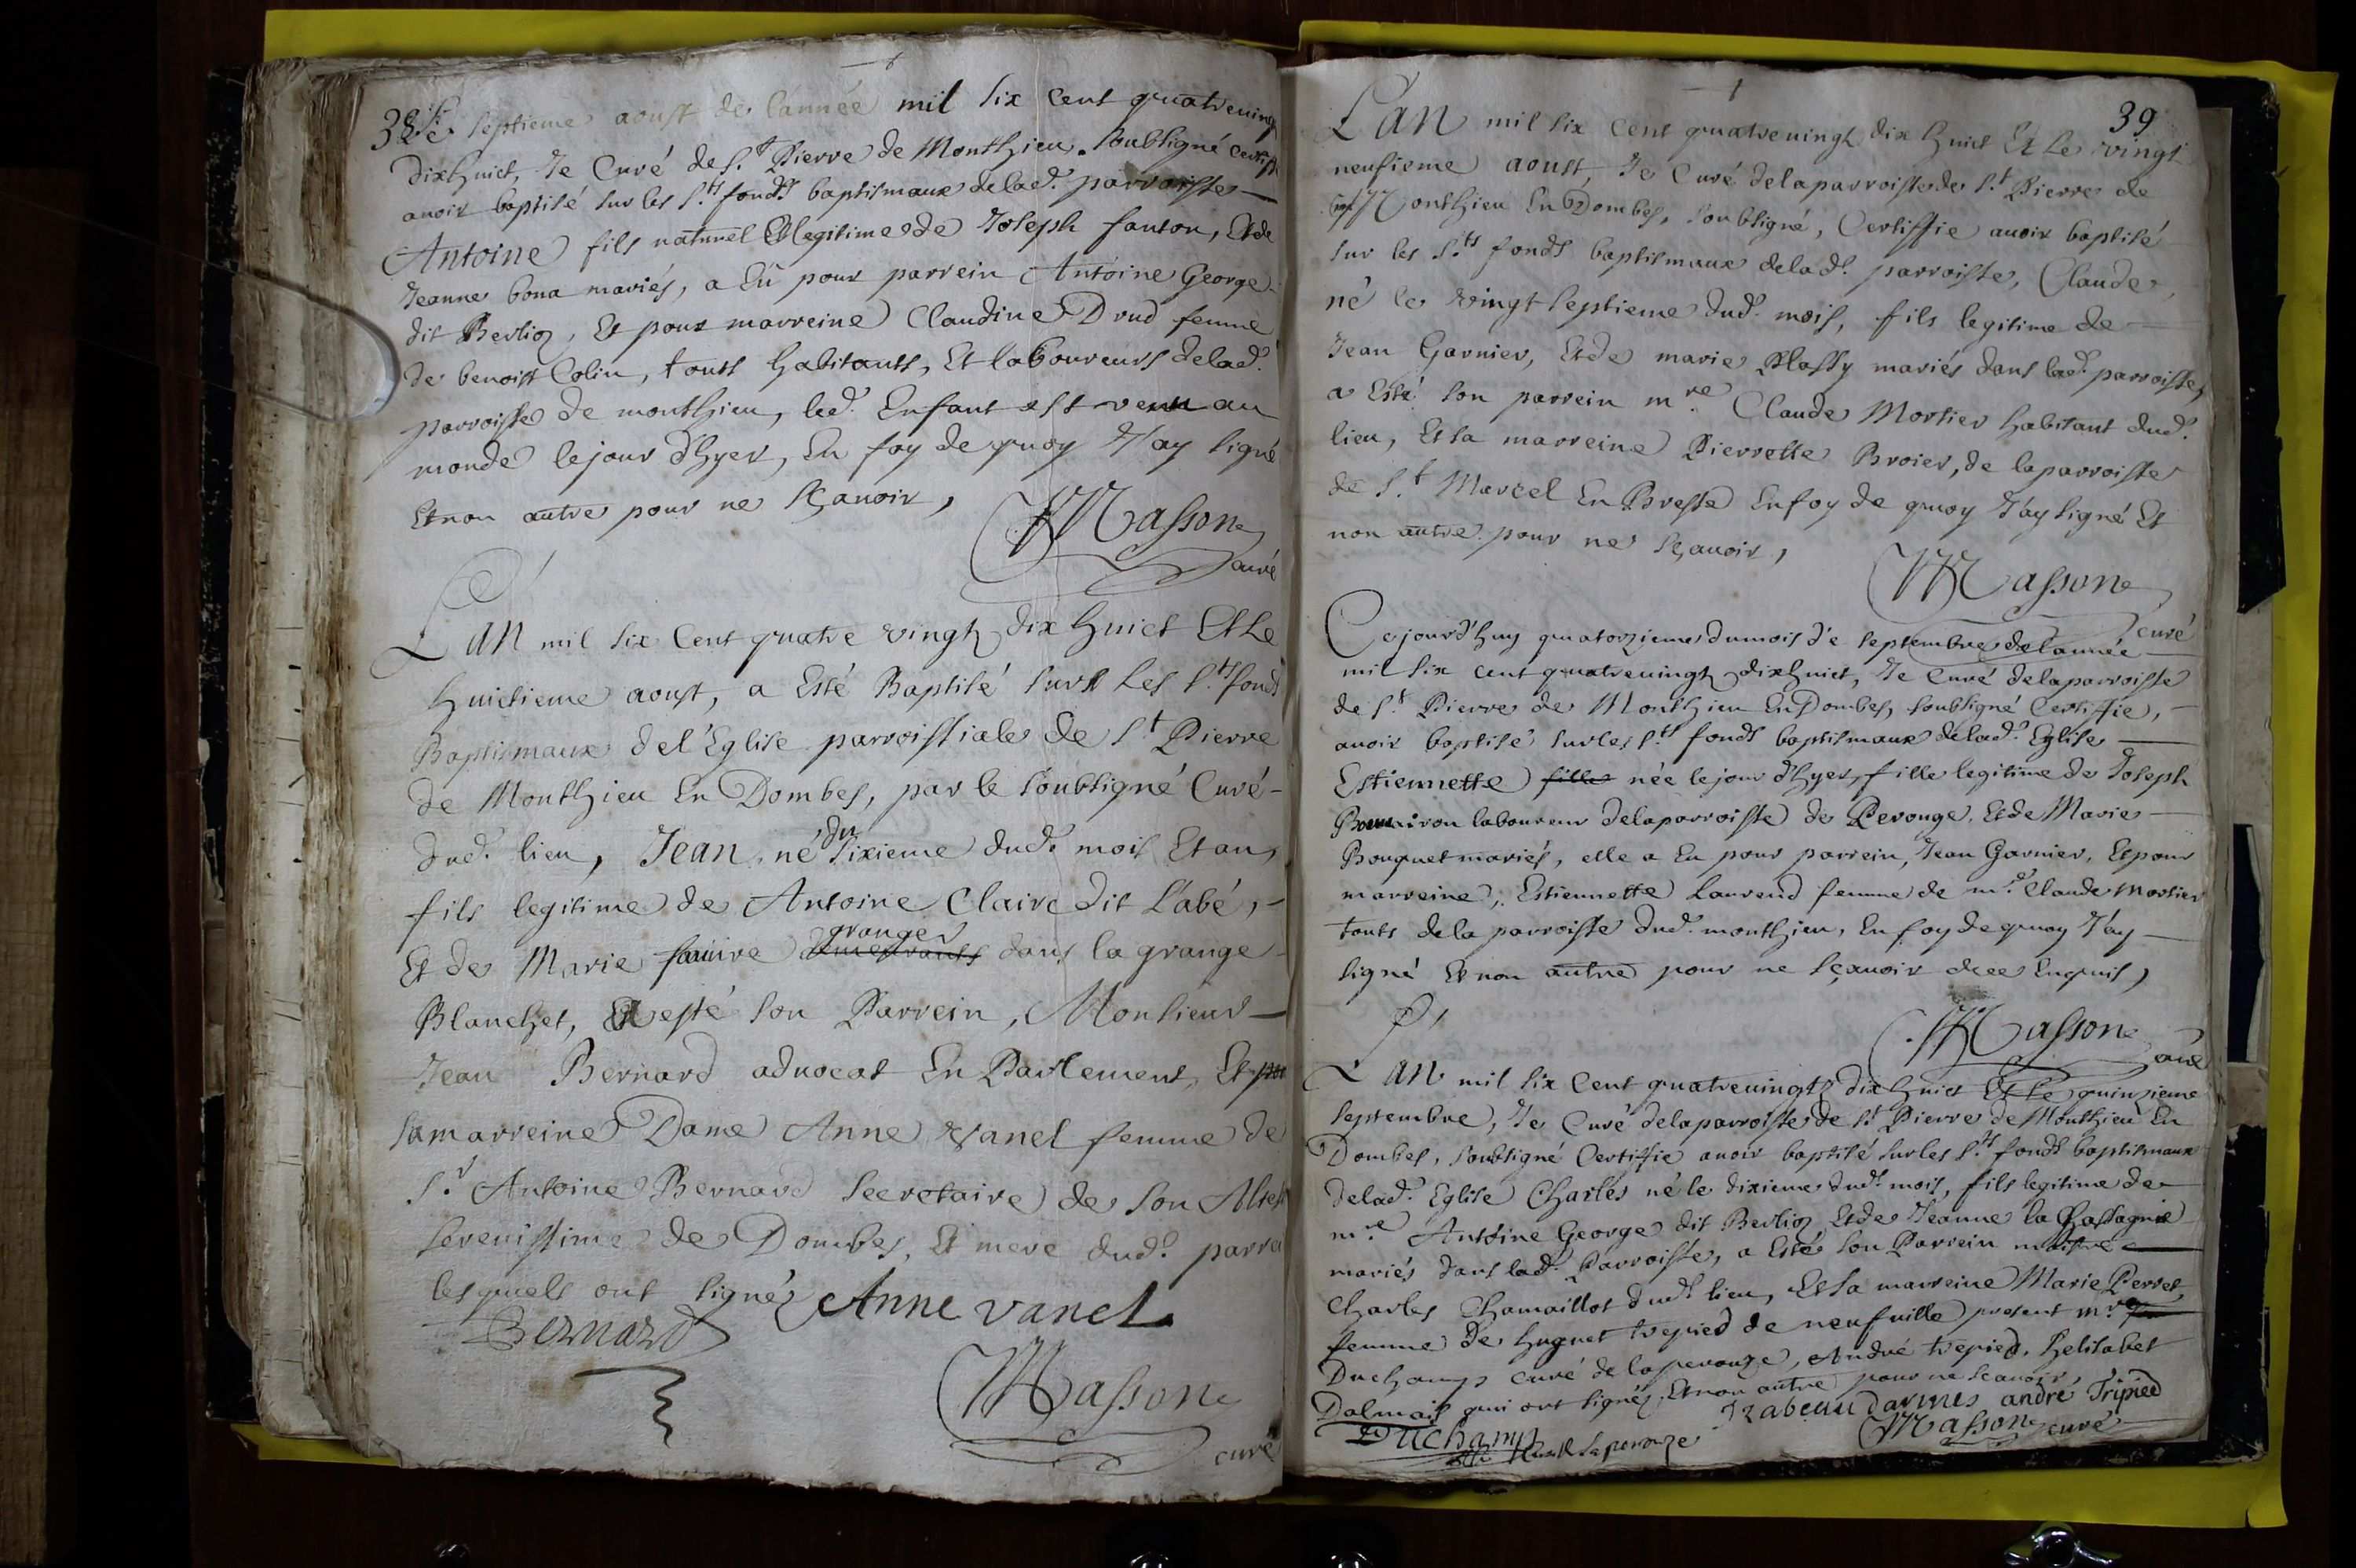 38
Le septieme aoust de l'année mil six cent quatreuingt
dixhuict, Je Curé de S.t Pierre de Monthieu, soubsigné certifie
auoir baptisé sur les S.ts fonds baptismaux de lad.e parroisse
Antoine fils naturel Et legitime de Joseph fanton, Et de
Jeanne bona mariés, a Eü pour parrein Antoine George
dit Berlioz, Et pour marreine Claudine Drud femme
de benoist Colin, touts habitants, Et laboureurs de lad.e
parroisse de monthieu, led.t Enfant est venu au
monde le jour d'hyer, En foy de quoy J'ay signé
Et non autre pour ne sçauoir,
Masson
curé
L'an mil six Cent quatre vingtz dix huict Et Le
huictieme aoust, a Esté Baptisé sur Les S.ts fonds
Baptismaux de l'Eglise parroissiale de S.t Pierre
de Monthieu En Dombes, par le soubsigné Curé
dud.t lieu, Jean, né du sixieme dud.t mois Et an,
fils legitime de Antoine Claire dit L'abé,
granger
Et de Marie fauure dans la grange
Blanchet, Et esté son Parrein, Monsieur
Jean Bernard aduocat En Parlement, Et
sa marreine Dame Anne Vanel femme de
S.r Antoine Bernard secretaire de son Altesse
serenissime de Dombes, Et mere dud.t parrein
lesquels ont signé Anne vanel
Bernard
Masson
curé
39
L'an mil six Cent quatreuingt dix huict Et Le vingt
neufieme aoust, Je Curé de la parroisse de S.t Pierre de
Monthieu En Dombes, soubsigné, Certiffie auoir baptisé
sur les S.ts fonds baptismaux de lad.e parroisse, Claude,
né le vingt septieme dud.t mois, fils legitime de
Jean Garnier, Et de marie Plassy mariés dans lad.e parroisse,
a Esté son parrein m.re Claude Mortier habitant dud.t
lieu, Et sa marreine Pierrette Broier, de la parroisse
de S.t Marcel En Bresse En foy de quoy J'ay signé Et
non autre pour ne sçauoir,
Masson
curé
Cejourd'huy quatorzieme du mois de septembre de l'année
mil six cent quatreuingtz dixhuict, Je Curé de la parroisse
de S.t Pierre de Monthieu En Dombes, soubsigné Certiffie,
auoir baptisé sur les S.ts fonds baptismaux de lad.e Eglise
Estiennette fille née le jour d'hyer, fille legitime de Joseph
laboureur de la parroisse de Perouge, Et de Marie
Bouquet mariés, elle a Eu pour parrein, Jean Garnier, Et pour
marreine, Estiennette Laurend femme de m.e Claude Mortier
touts de la parroisse dud.t monthieu, En foy de quoy J'ay
signé Et non autre pour ne sçauoir de ce Enquis,
Masson
curé
L'an mil six Cent quatreuingtz dix huict Et Le quinzieme
septembre, Je Curé de la parroisse de S.t Pierre de Monthieu En
Dombes, soubsigné Certiffie auoir baptisé sur les S.ts fonds baptismaux
de lad.e Eglise Charles né le dixieme dud.t mois, fils legitime de
m.re Antoine George dit Berlioz Et de Jeanne la Chassagne
mariés dans lad.e Parroisse, a Esté son Parrein maistre
Charles Chamaillot dud.t lieu, Et sa marreine Marie Perret,
femme de huguet trepied de neufuille present m.re
Duchamp curé de laperouze, André trepied, helisabet
Dalmais qui ont signés, Et non autre pour ne scauoir,
Duchamp Izabeau darmes andre Tripied
Curé de laperouze Masson curé